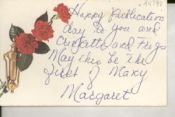 Happy Publication
day to you and
and
May this be the
first of Many
Margaret